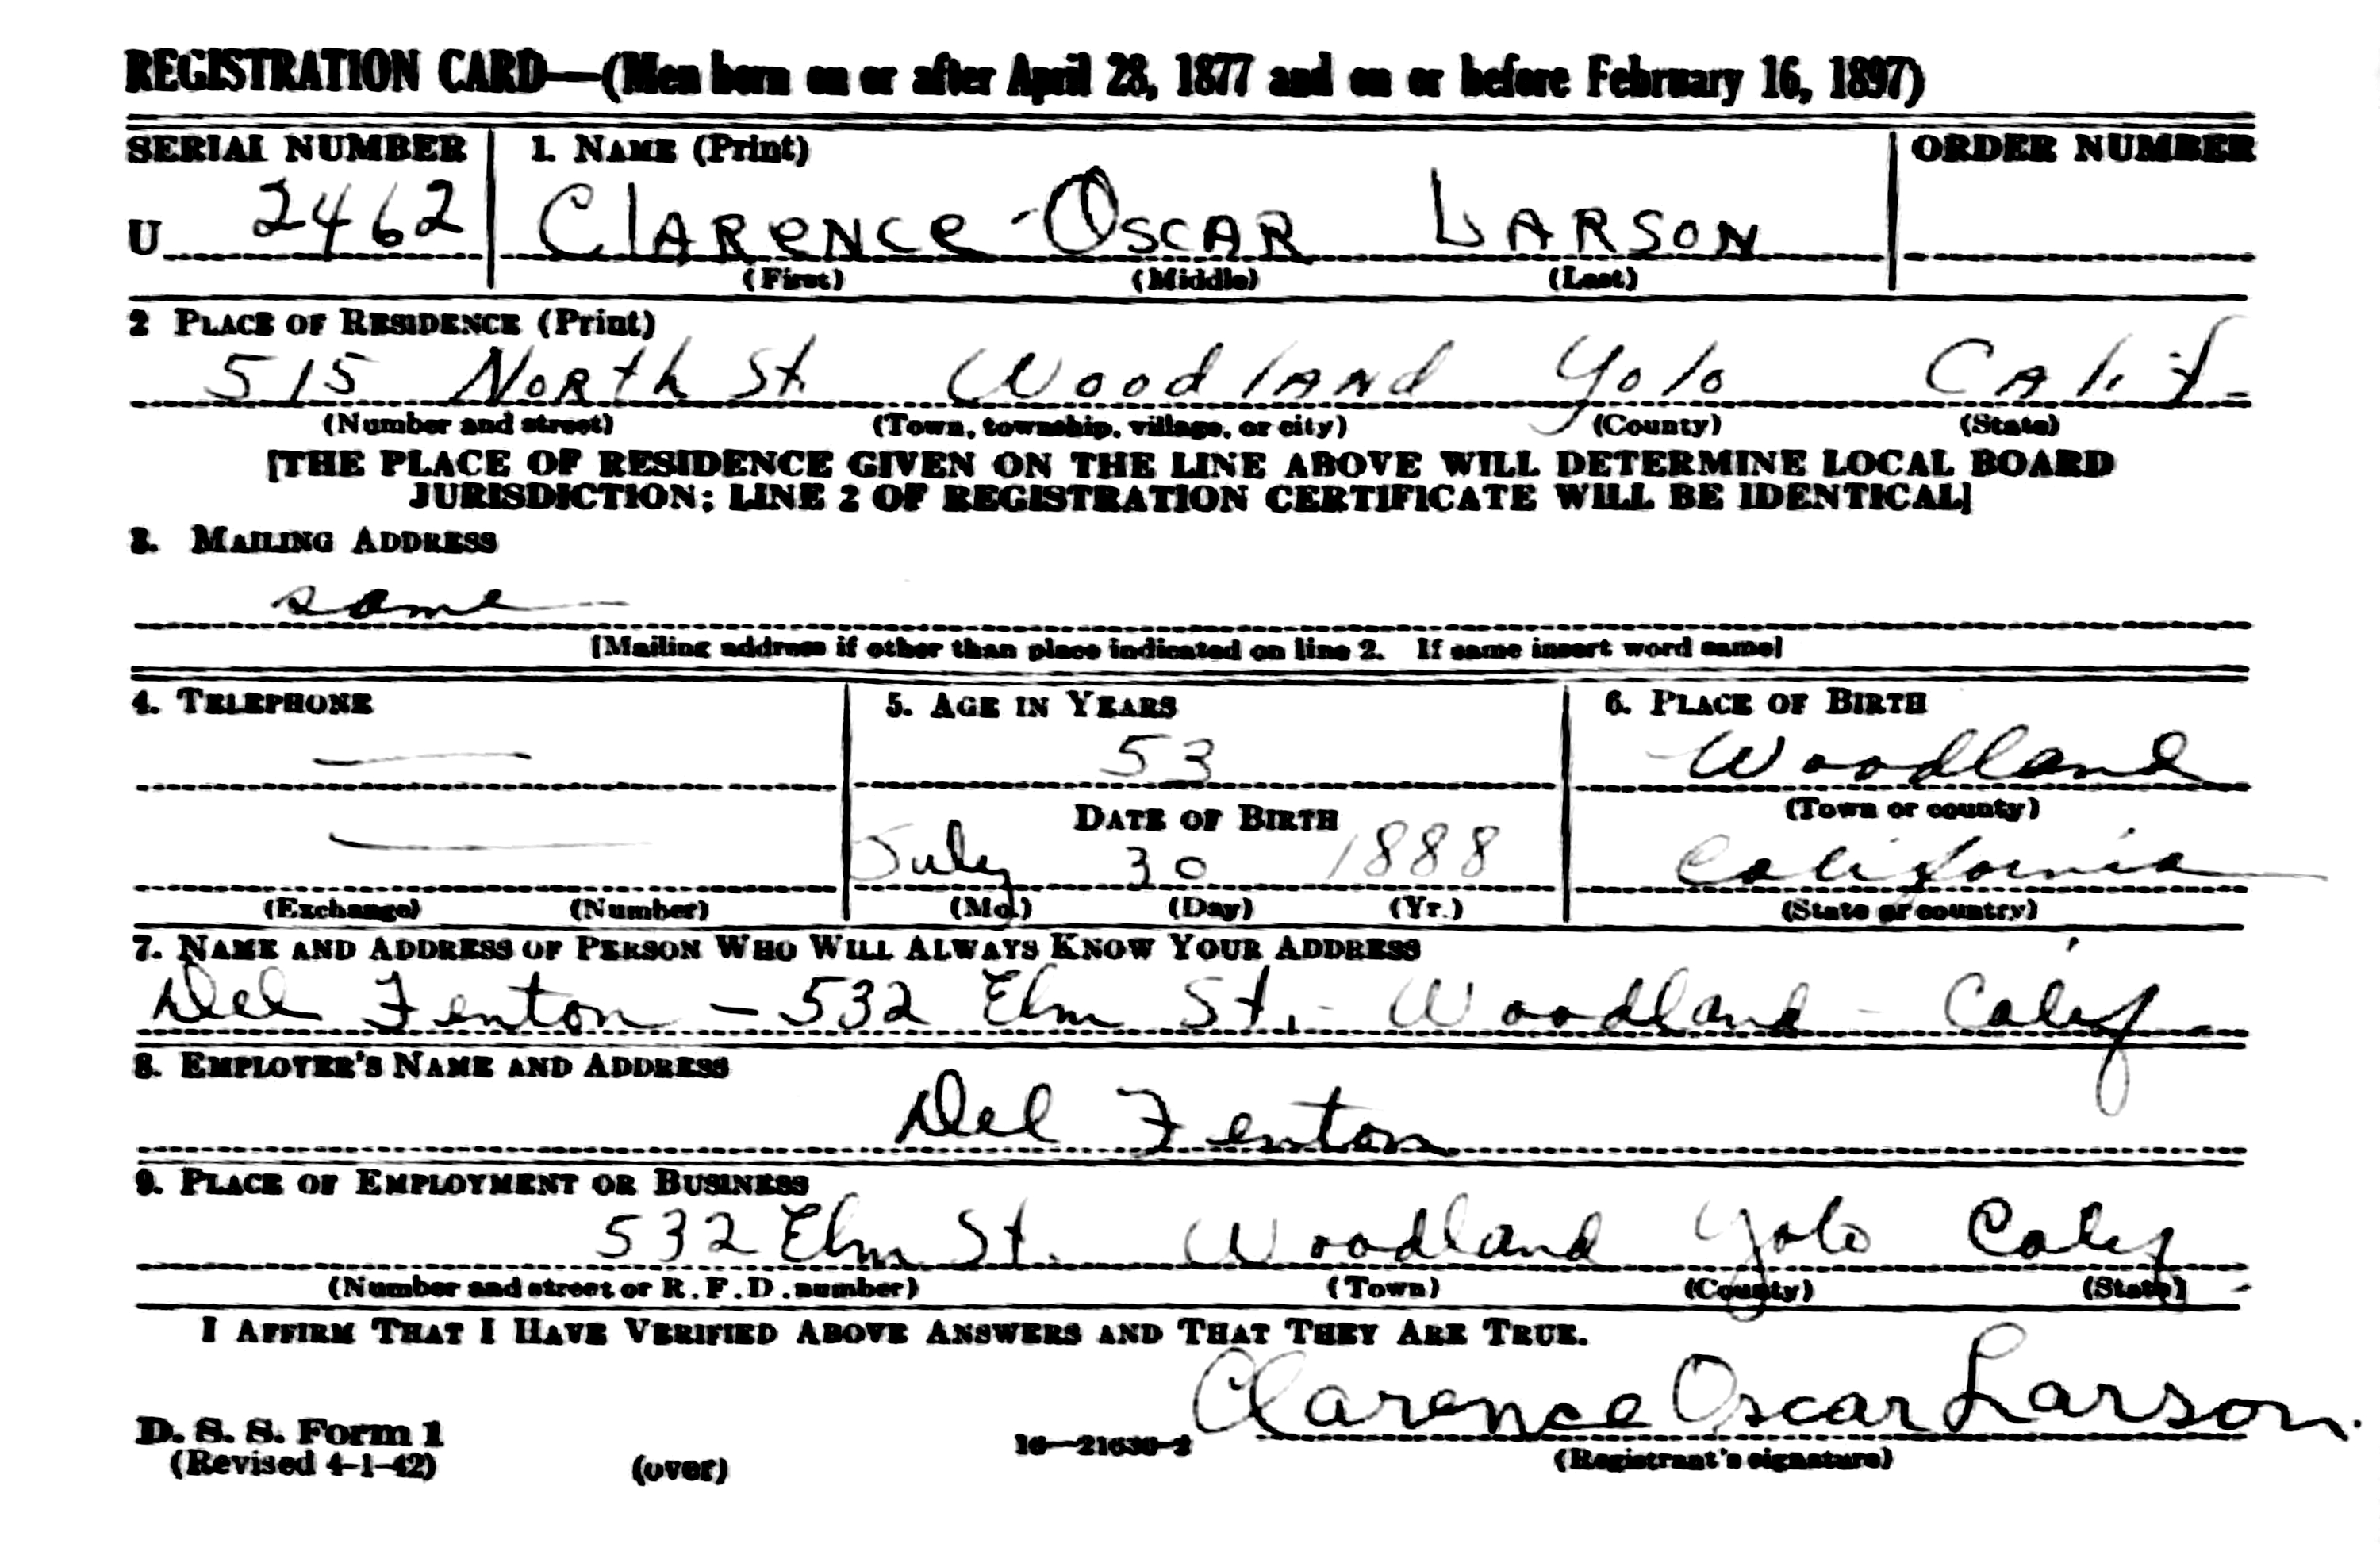 REGISTRATION CARD—(Men born on or after April 28, 1877 and on or before February 16, 1897)
SERIAL NUMBER 1. NAME (Print) ORDER NUMBER
U 2462 CLARENCE OSCAR LARSON
(First) (Middle) (Last)
2 PLACE OF RESIDENCE (Print)
515 NORth St WoodlANd Yolo CAlif.
(Number and street) (Town, township, village, or city) (County) (State)
[THE PLACE OF RESIDENCE GIVEN ON THE LINE ABOVE WILL DETERMINE LOCAL BOARD
JURISDICTION; LINE 2 OF REGISTRATION CERTIFICATE WILL BE IDENTICAL]
3. MAILING ADDRESS
same
[Mailing address if other than place indicated on line 2. If same insert word same]
4. TELEPHONE 5. AGE IN YEARS 6. PLACE OF BIRTH
53 Woodland
DATE OF BIRTH (Town or county)
July 30 1888 California
(Exchange) (Number) (Mo.) (Day) (Yr.) (State or country)
7. NAME AND ADDRESS OF PERSON WHO WILL ALWAYS KNOW YOUR ADDRESS
Del Fenton - 532 Elm St. - Woodland - Calif
8. EMPLOYER'S NAME AND ADDRESS
Del Fenton
9. PLACE OF EMPLOYMENT OR BUSINESS
532 Elm St. Woodland Yolo Calif
(Number and street or R. F. D. number) (Town) (County) (State)
I AFFIRM THAT I HAVE VERIFIED ABOVE ANSWERS AND THAT THEY ARE TRUE.
Clarence Oscar Larson.
D. S. S. Form 1
(Revised 4-1-42) (over) 16—21630-2 (Registrant's signature)